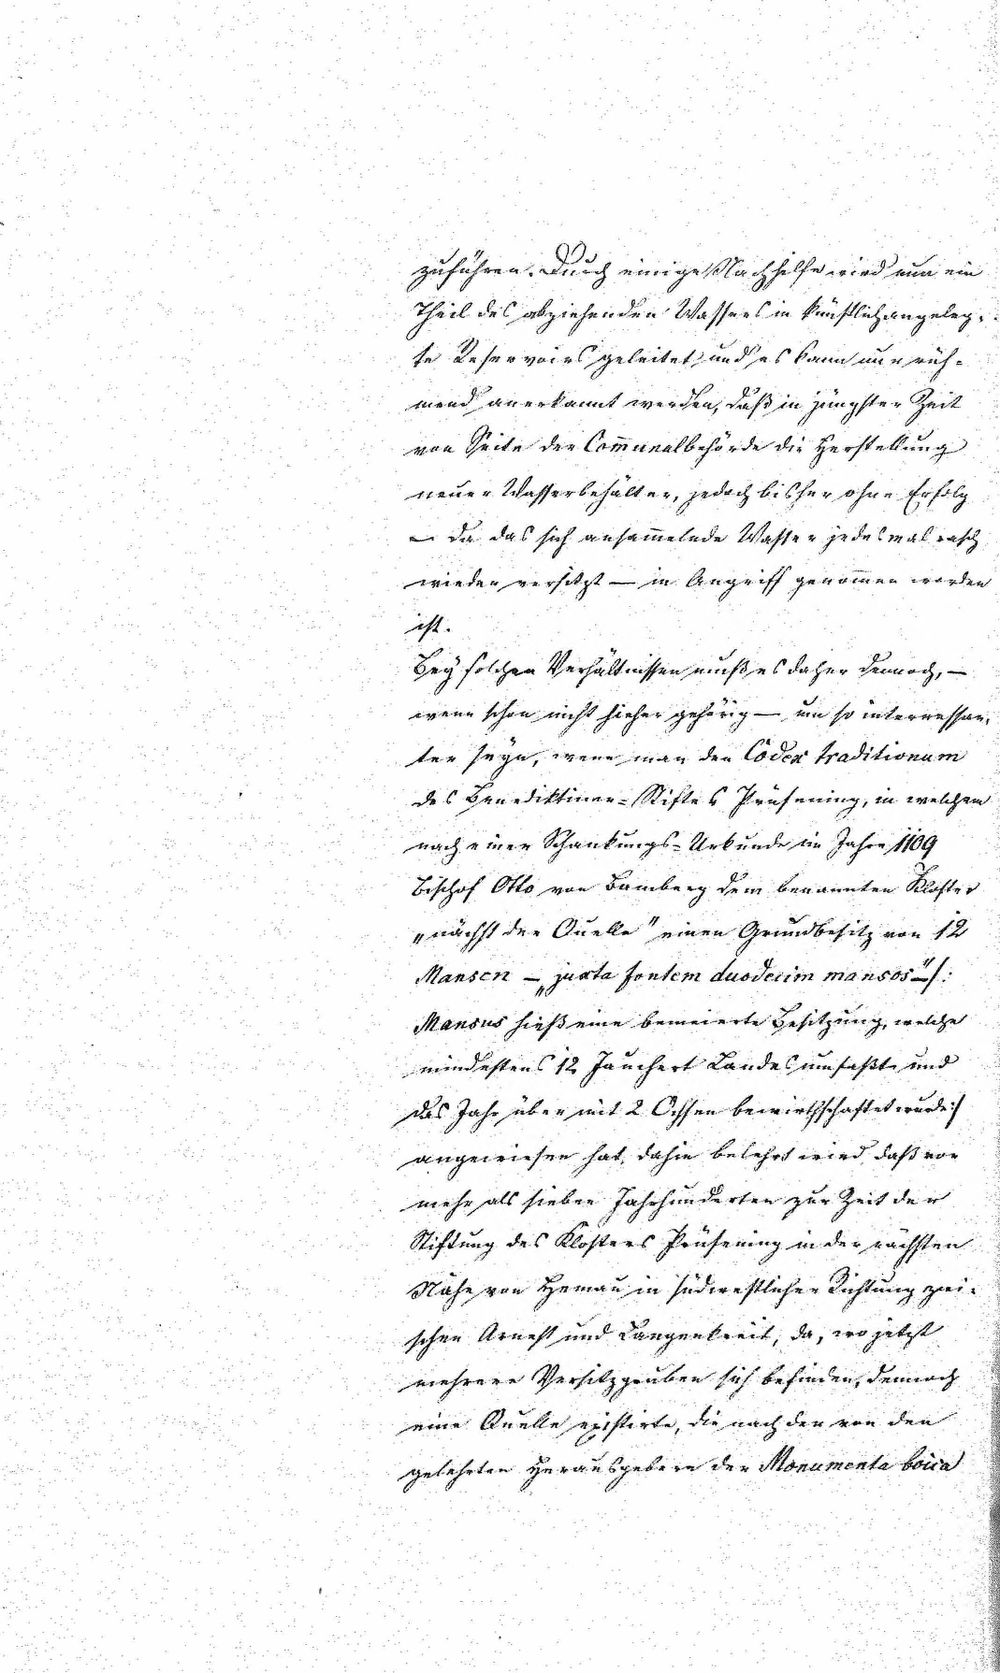 zuführen. Durch einige Nachhilfe wird nun ein
Theil des abziehenden Wassers in künstlich angeleg-
te Reservoirs geleitet und es kann nur rüh-
mend anerkannt werden, daß in jüngster Zeit
von Seite der Com̅unalbehörde die Herstellung
neuer Wasserbehälter, jedoch bisher ohne Erfolg
— da das sich ansam̅elnde Wasser jedesmal rasch
wieder versitzt — in Angriff genom̅en worden
ist.
Bey solchen Verhältnissen muß es daher dennoch, —
wenn schon nicht hieher gehörig — um so interressan-
ter seyn, wenn man den Codex traditionum
des Benediktiner-Stiftes Prüfening, in welchem
nach einer Schankungs-Urkunde im Jahre 1109
Bischof Otto von Bamberg dem benannten Kloster
„nächst der Quelle" einen Grundbesitz von 12
Mansen — „juxta fontem duodecim mansos" — /:
Mansus hieß eine bemeierte Besitzung, welche
mindestens 12 Jauchert Landes umfaßte und
das Jahr über mit 2 Ochsen bewirthschaftet wurde :/
angewiesen hat, dahin belehrt wird, daß vor
mehr als sieben Jahrhunderten zur Zeit der
Stiftung des Klosters Prüfening in der nächsten
Nähe von Hemau in südwestlicher Richtung zwi-
schen Arnest und Langenkreit, da, wo jetzt
mehrere Versitzgruben sich befinden, dennoch
eine Quelle existirte, die nach der von den
gelehrten Herausgebern der Monumenta boica